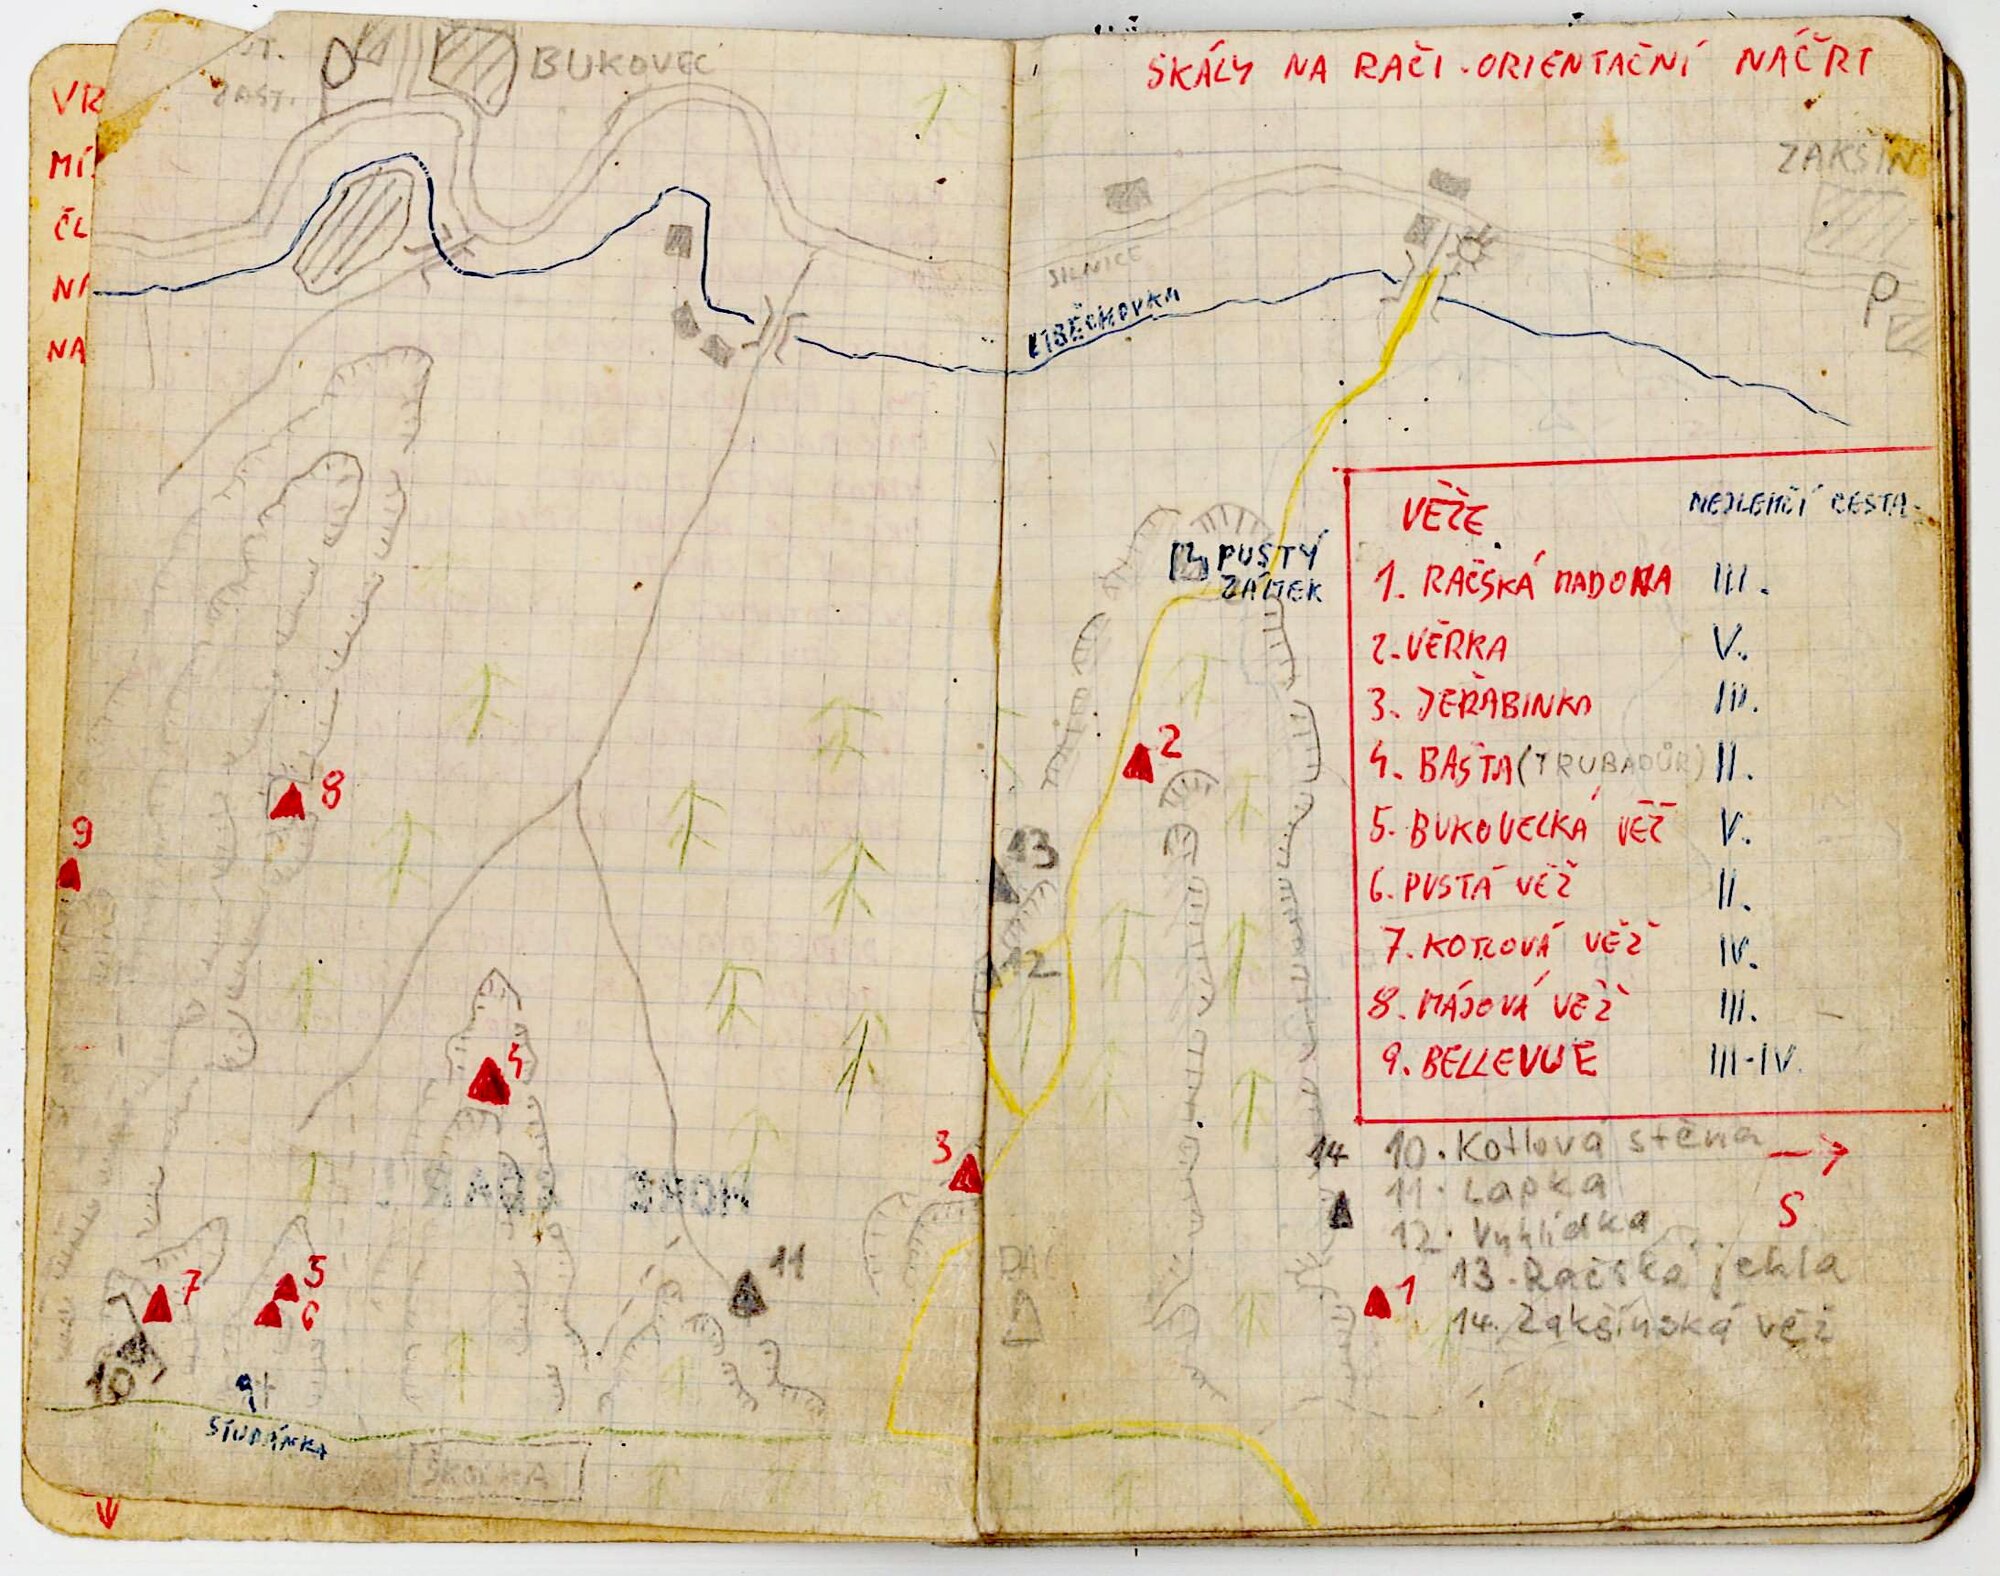 SKÁLY NA RAČI - ORIENTAČNÍ NÁČRT
VR
MÍ
ČL
NA
NA
ST.
ZAST.
BUKOVEC
ZAKŠÍN
SILNICE
LIBĚCHOVKA
PUSTÝ
ZÁMEK
VĚŽE NEJLEHČÍ CESTA:
1. RAČSKÁ MADONA III.
2. VĚRKA V.
3. JEŘABINKA
4. BAŠTA (TRUBADŮR) II.
5. BUKOVECKÁ VĚŽ V.
6. PUSTÁ VĚŽ II.
7. KOTLOVÁ VĚŽ IV.
8. MÁJOVÁ VĚŽ III.
9. BELLEVUE III-IV.
10. Kotlová stěna
11. Lapka
12. Vyhlídka
13. Račská jehla
14. Zakšínská věž
S
8
9
2
13
12
4
3
14
11
1
7
5
6
10
STUDÁNKA
ŠKOLKA